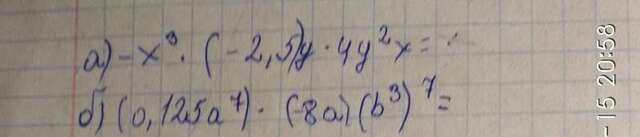 а) -x³ · (-2,5)y · 4y²x =
б) (0,125a⁷) · (-8a)(b³)⁷ =
-15 20:58